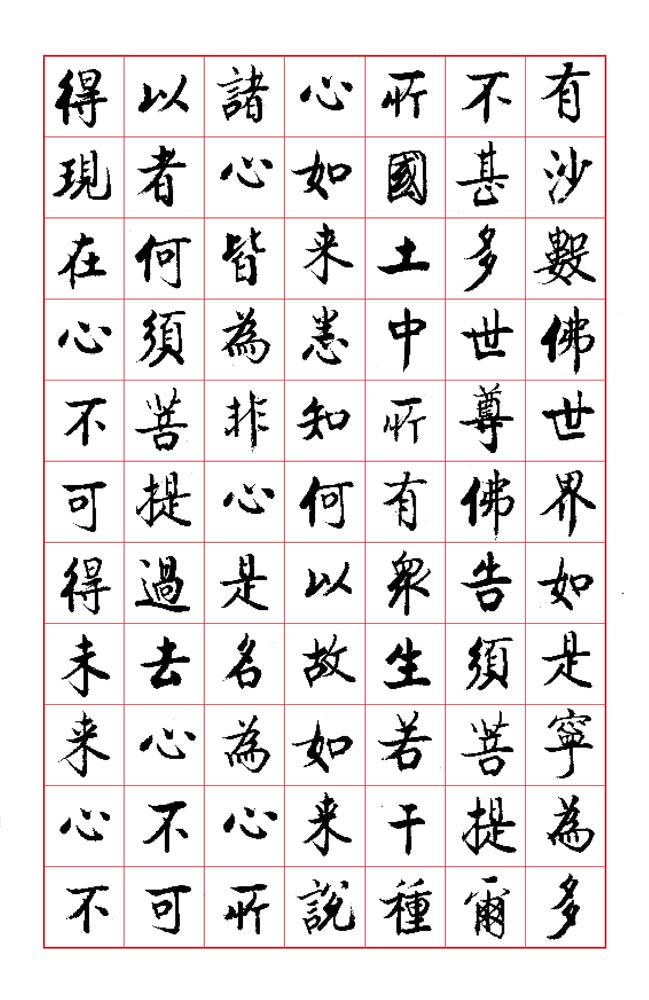 有沙數佛世界如是寧為多
不甚多世尊佛告須菩提爾
所國土中所有衆生若干種
心如来悉知何以故如来說
諸心皆為非心是名為心所
以者何須菩提過去心不可
得現在心不可得未来心不